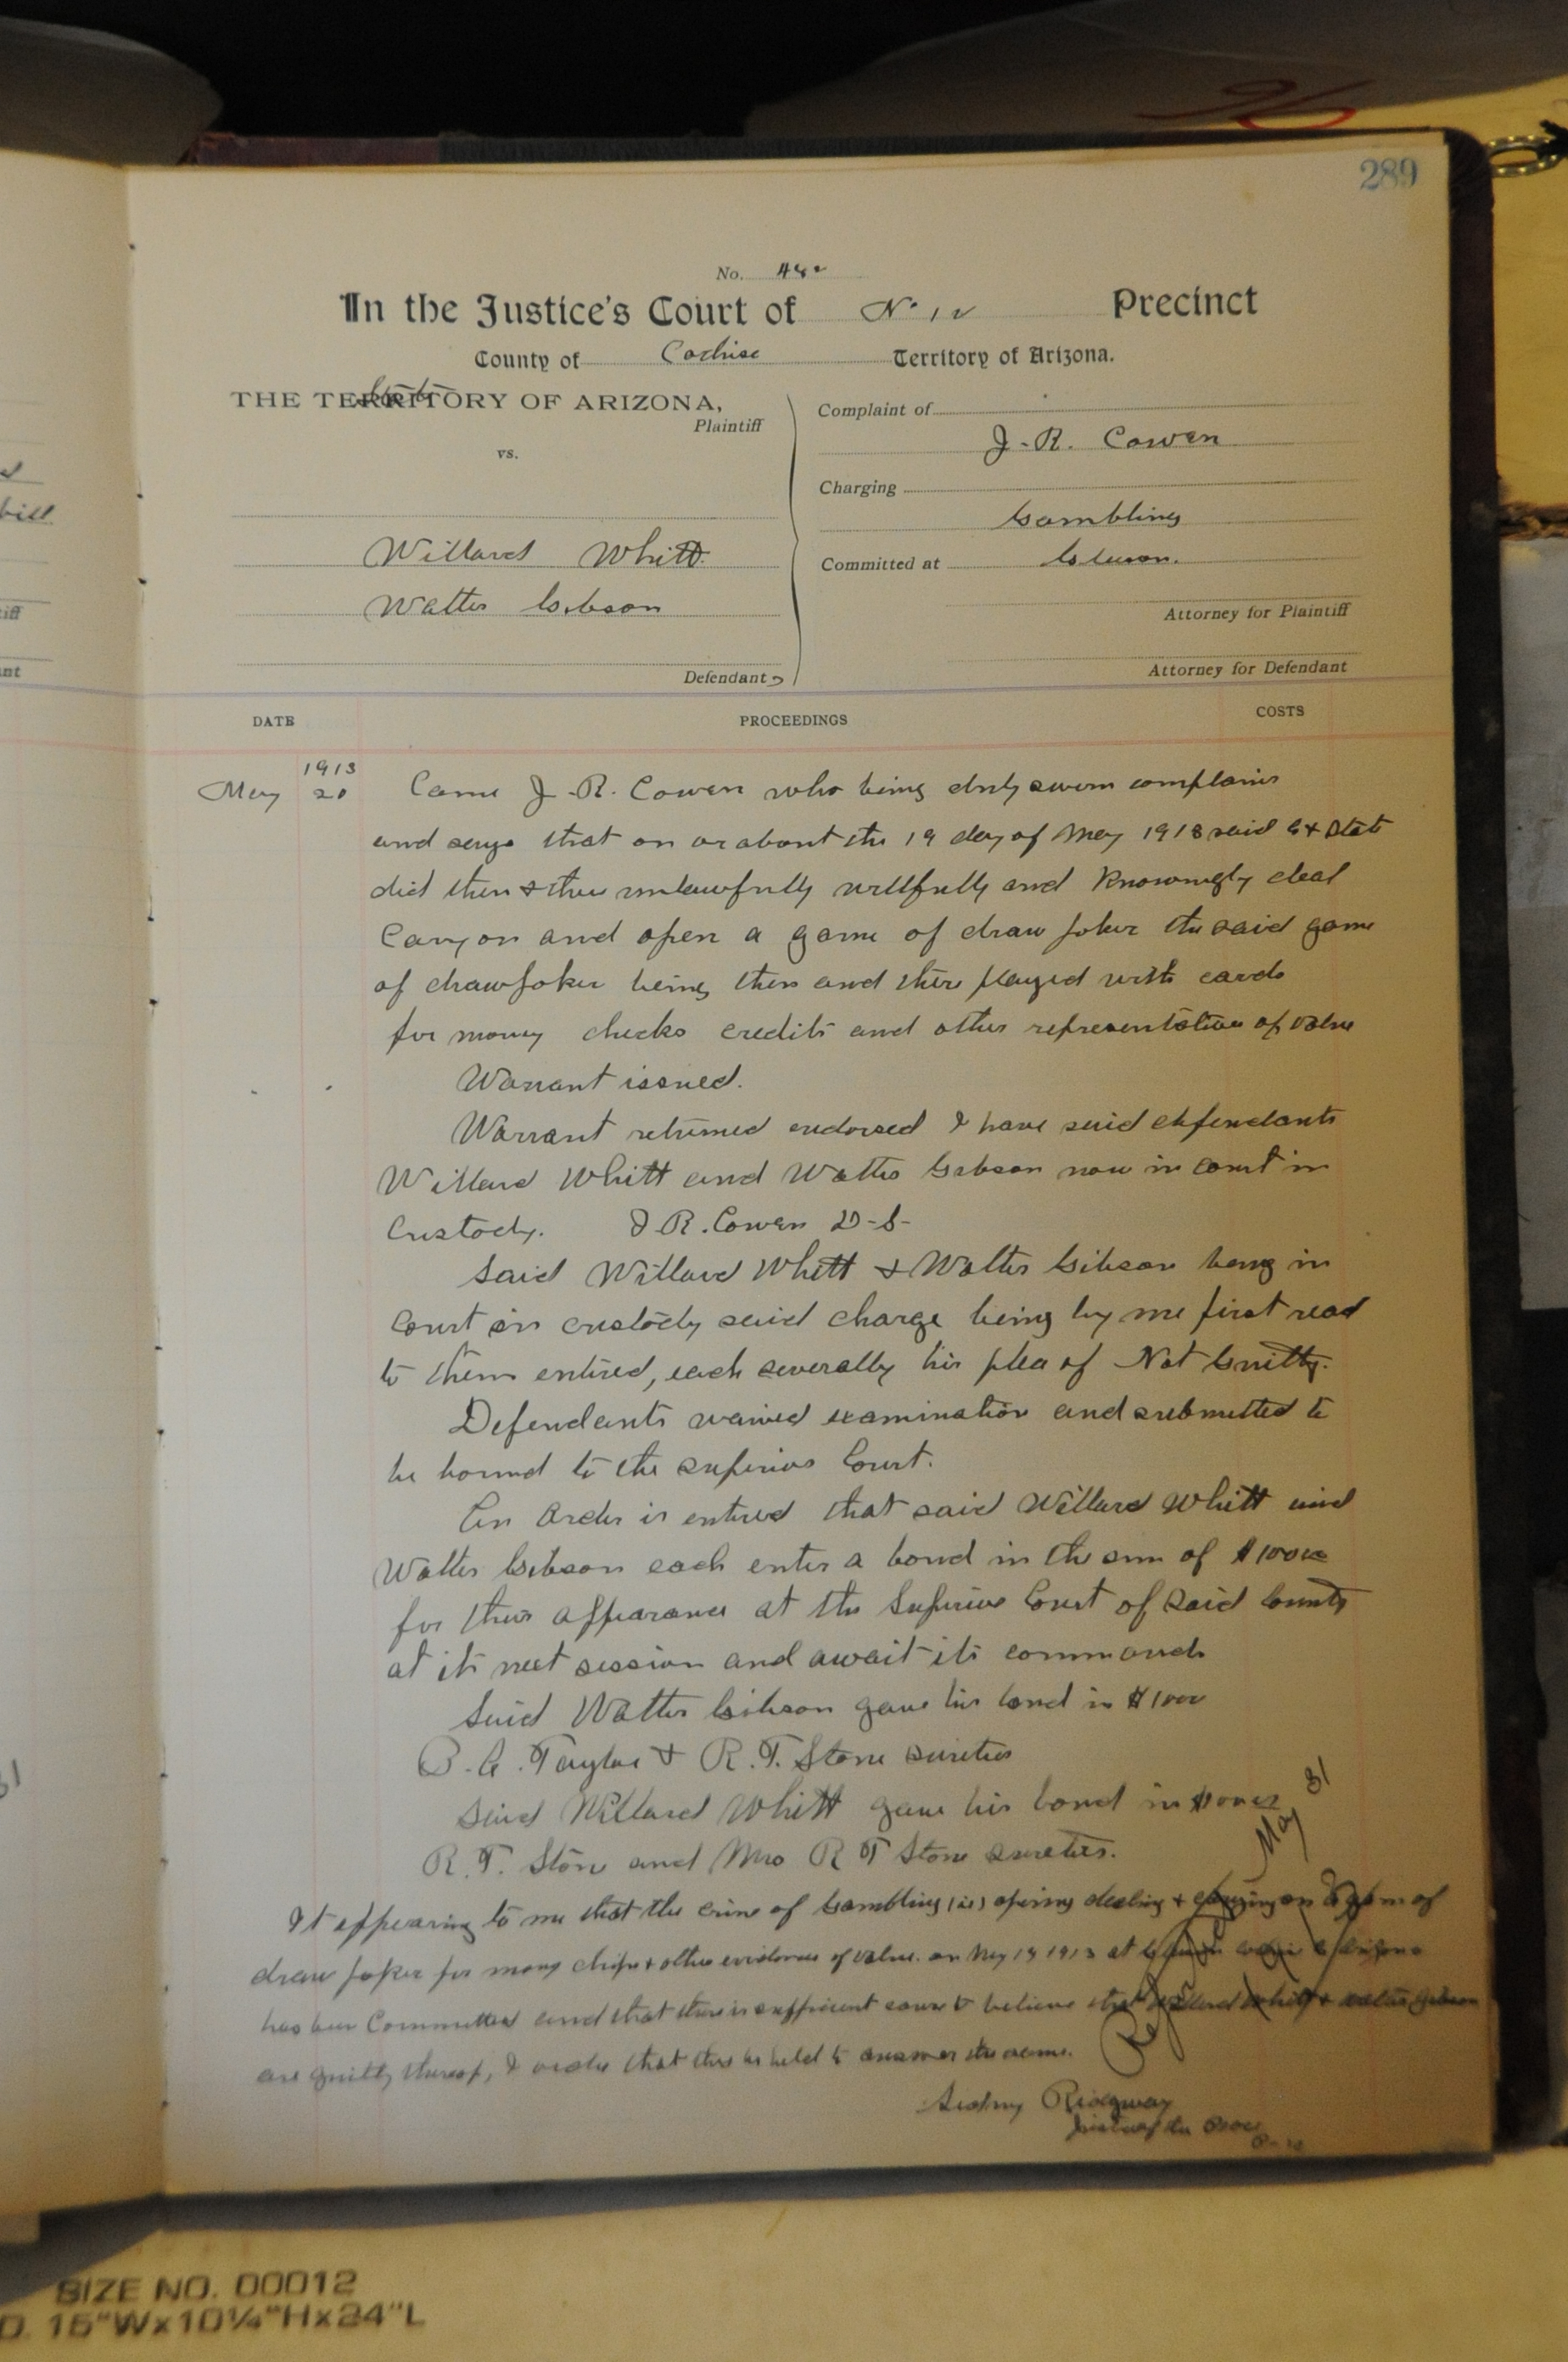 289
No. 480
In the Justice's Court of No 12 Precinct
County of Cochise Territory of Arizona.
THE TERRITORY OF ARIZONA,
State
Plaintiff
vs.
Willard Whitt
Walter Gibson
Defendants
Complaint of
J. R. Cowen
Charging
Gambling
Committed at Gleeson.
Attorney for Plaintiff
Attorney for Defendant
DATE PROCEEDINGS COSTS
1913
May 20 Came J. R. Cowen who being duly sworn complains
and says that on or about the 19 day of May 1913 said Co & State
did then & there unlawfully willfully and knowingly deal
Carry on and open a game of draw poker the said game
of draw poker being then and there played with cards
for money checks credits and other representative of value
Warrant issued.
Warrant returned endorsed I have said defendants
Willard Whitt and Walter Gibson now in court in
Custody. J. R. Cowen D-S-
Said Willard Whitt & Walter Gibson being in
Court in custody said charge being by me first read
to them entired, each severally his plea of Not Guilty.
Defendants waived examination and submitted to
be bound to the superior Court.
An Order is entered that said Willard Whitt and
Walter Gibson each enter a bond in the sum of $1000
for their appearance at the Superior Court of said County
at its next session and await its commands
Said Walter Gibson gave his bond in $1000
Taylor & R. T. Stone sureties
Said Willard Whitt gave his bond in
R. T. Stone and Mrs R T Stone sureties.
May 31
It appearing to me that the crime of Gambling (is) opening dealing & carrying on a game of
draw poker for money chips & other evidences of value. on May 19 1913 at Arizona
has been Committed and that there is sufficient cause to believe that Willard Whitt & Walter Gibson
are guilty thereof, I order that they be held to answer the same.
Sidney Ridgway
Justice of the Peace
SIZE NO. 00012
D. 15"Wx10¼"Hx24"L